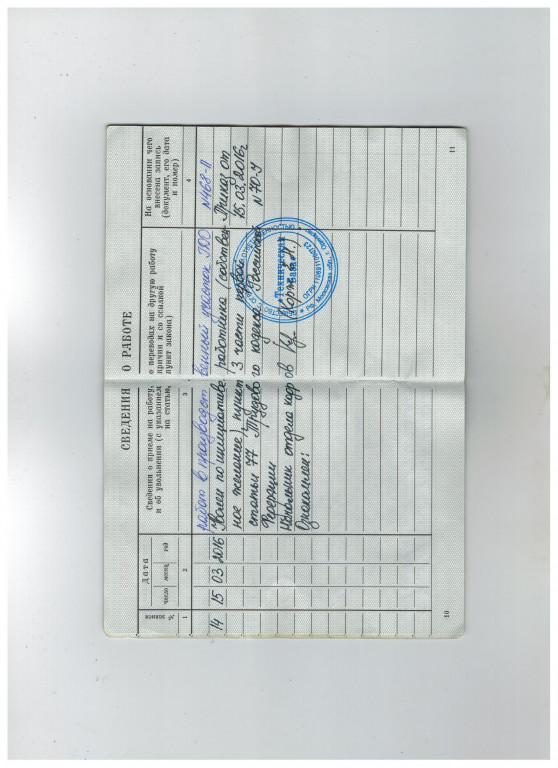 СВЕДЕНИЯ О РАБОТЕ
№ записи
Дата
число
месяц
год
Сведения о приеме на работу, о переводах на другую работу
и об увольнении (с указанием причин и со ссылкой
на статью, пункт закона)
На основании чего
внесена запись
(документ, его дата
и номер)
1 2 3 4
работ в производственный участок ПВО №468-П
14 15 03 2016 Уволен по инициативе работника (собствен- Приказ от
ное желание), пункт 3 части первой 15.03.2016г
статьи 77 Трудового кодекса Российской №70-У
Федерации
Начальник отдела кадров
Ознакомлен:
«Техническая
база»
10
11